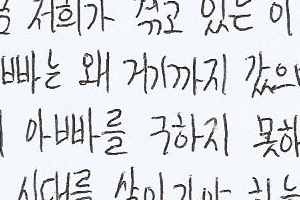 저희가 겪고 있는 이
빠는 왜 거기까지 갔으
아빠를 구하지 못하
시대를 살아가야 하는